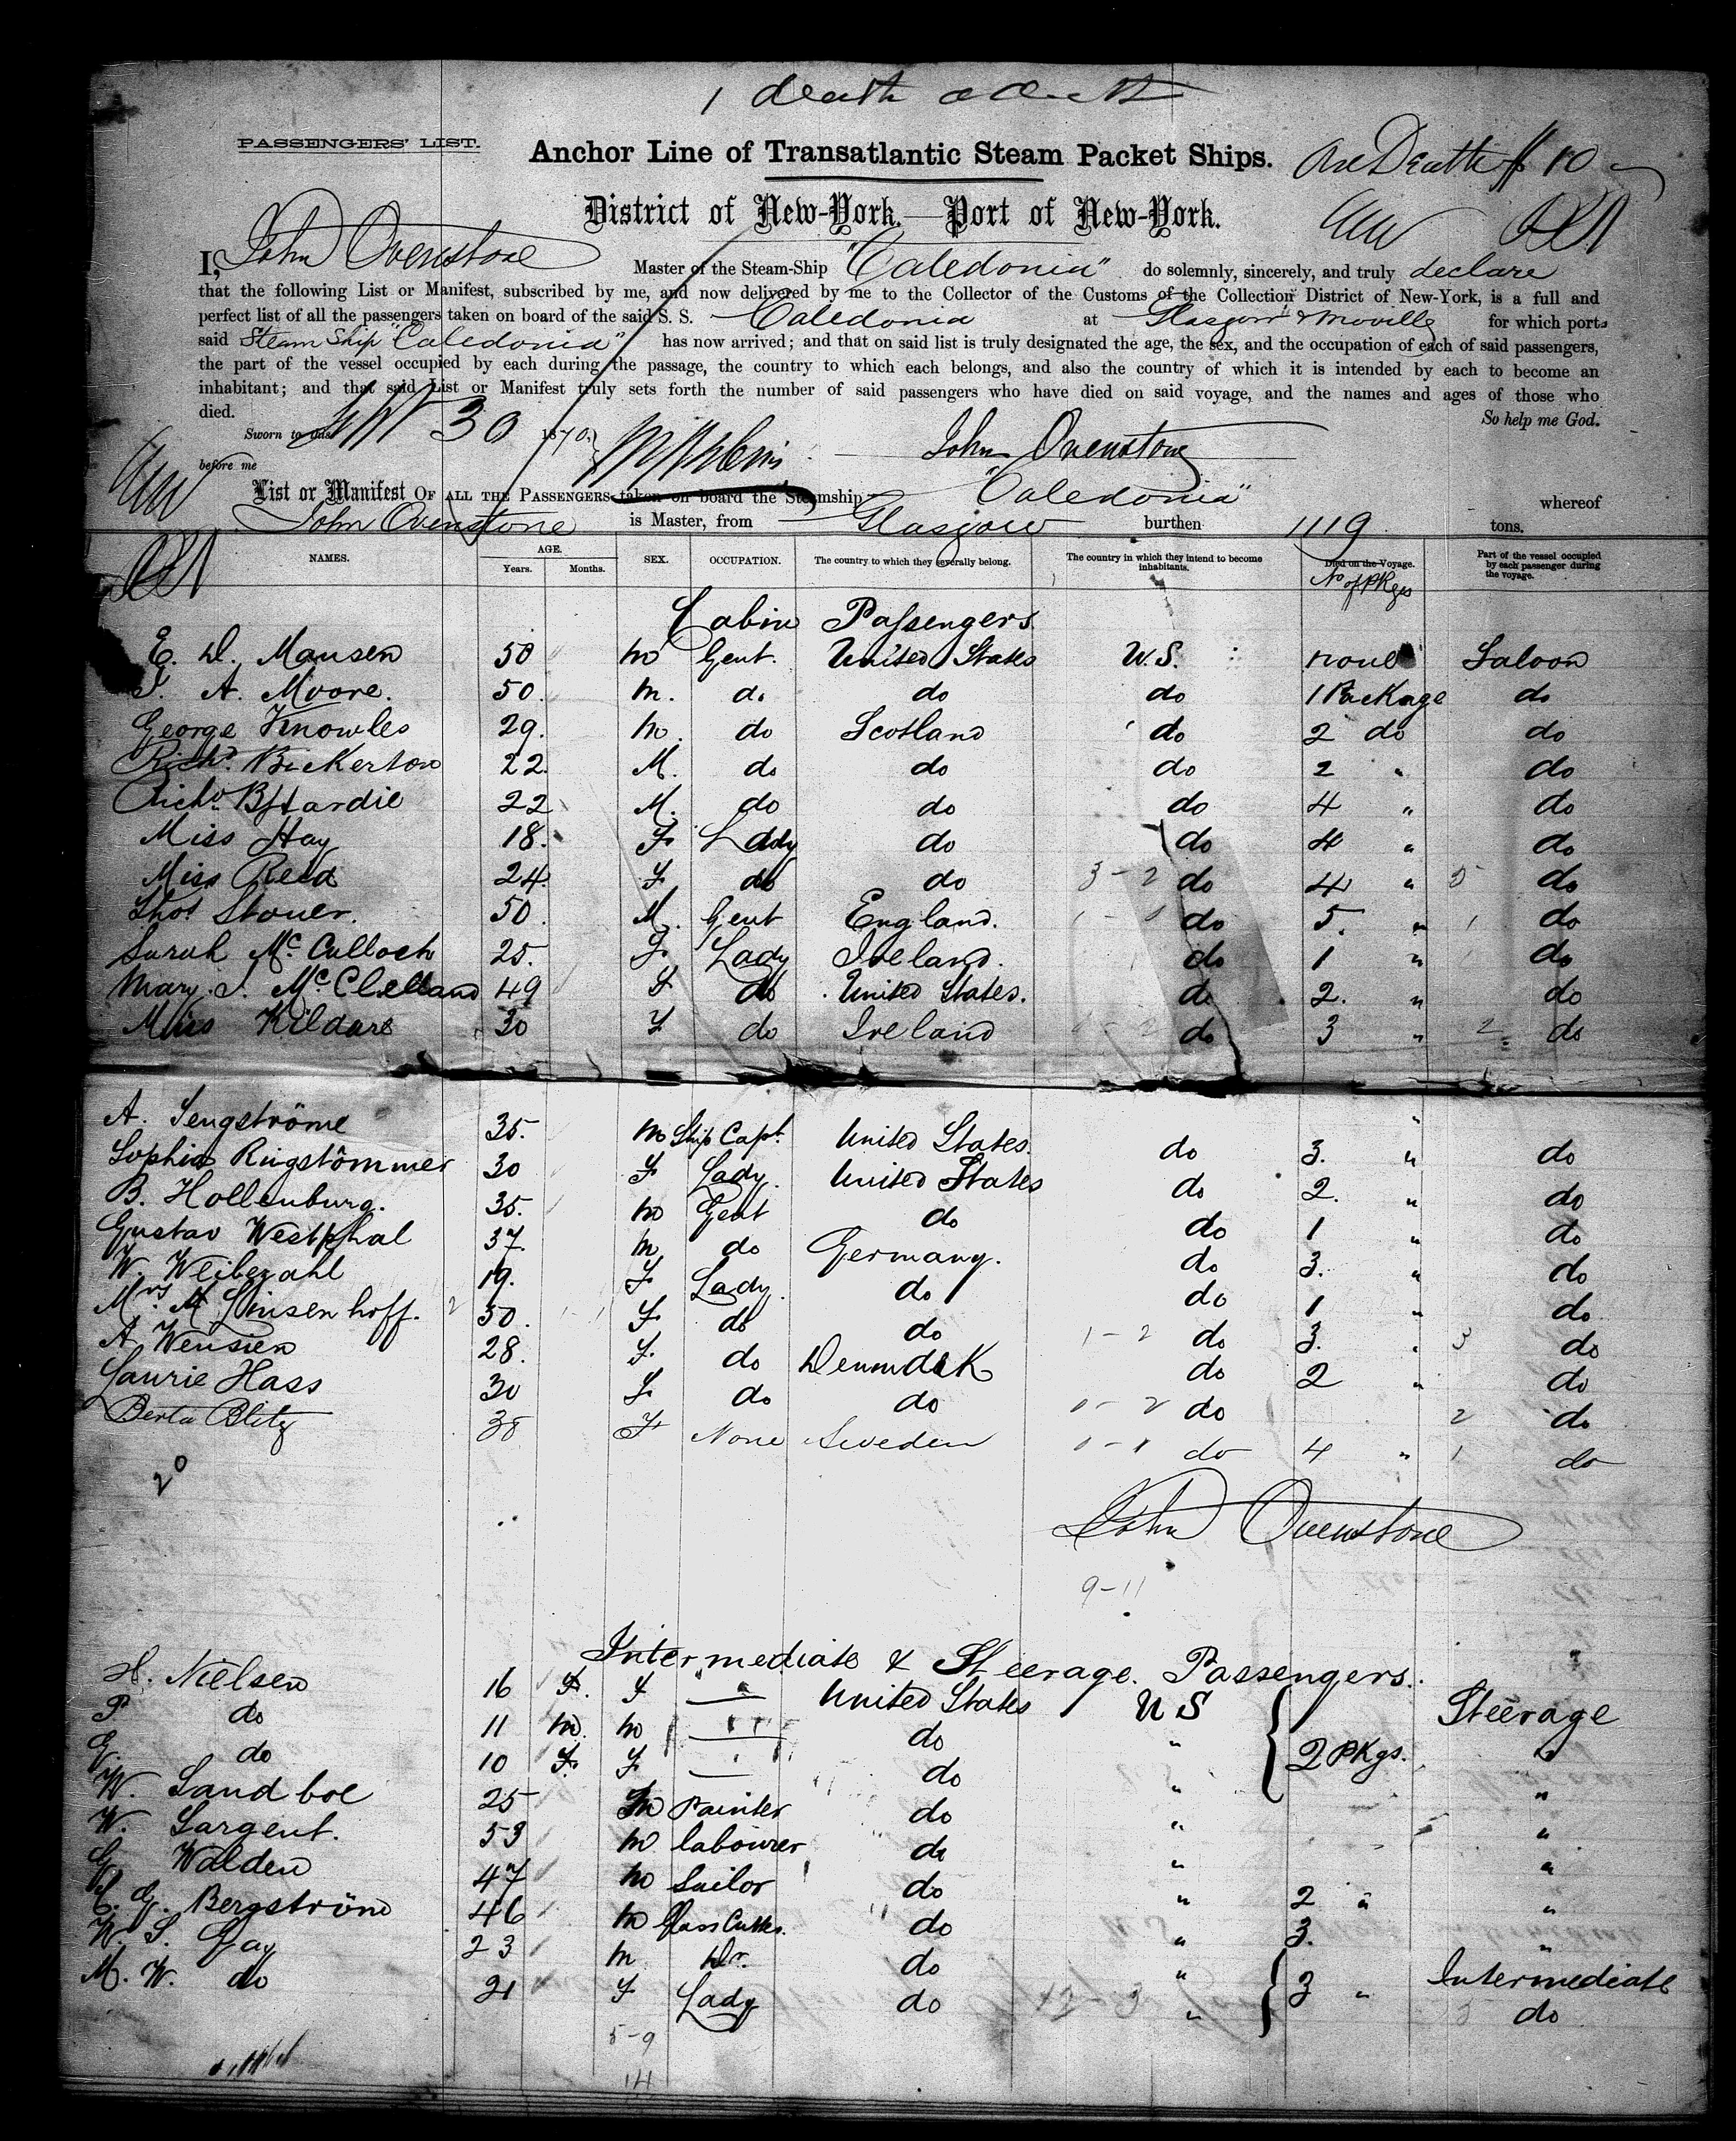 1 death
PASSENGERS' LIST.
Anchor Line of Transatlantic Steam Packet Ships.
One Death $10
District of New-York.—Port of New-York.
I, John Ovenstone Master of the Steam-Ship "Caledonia" do solemnly, sincerely, and truly declare
that the following List or Manifest, subscribed by me, and now delivered by me to the Collector of the Customs of the Collection District of New-York, is a full and
perfect list of all the passengers taken on board of the said S. S. Caledonia at Glasgow & Moville for which port
said Steam Ship "Caledonia" has now arrived; and that on said list is truly designated the age, the sex, and the occupation of each of said passengers,
the part of the vessel occupied by each during the passage, the country to which each belongs, and also the country of which it is intended by each to become an
inhabitant; and that said List or Manifest truly sets forth the number of said passengers who have died on said voyage, and the names and ages of those who
died. So help me God.
Sworn to this Sept 30 1870. John Ovenstone
before me
List or Manifest OF ALL THE PASSENGERS taken on board the Steamship "Caledonia" whereof
John Ovenstone is Master, from Glasgow burthen 1119 tons.
NAMES. AGE. Years. Months. SEX. OCCUPATION. The country to which they severally belong. The country in which they intend to become inhabitants. Died on the Voyage. No of Pkges Part of the vessel occupied by each passenger during the voyage.
Cabin Passengers
E. D. Mansen 50 m Gent. United States U.S. none Saloon
A. Moore. 50. m. do do do 1 Package do
George Knowles 29. m. do Scotland do 2 do do
Richd. Bickerton 22. M. do do do 2 " do
Richd B Hardie 22 M. do do do 4 " do
Miss Hay 18. F Lady do do 4 " do
Miss Reed 24. F do do 3-2 do 4 " 5 do
Thos Stoner. 50. M. Gent England. do 5. " 1 do
Sarah McCulloch 25. F Lady Ireland. do 1 " do
Mary J. McClelland 49 F do United States. do 2. " do
Miss Kildare 30 F do Ireland do 3 " 2 do
A. Sengströme 35. m Ship Capt. United States. do 3. " do
Sophia Ringstömmer 30 F Lady. United States do 2. " do
B. Hollenburg. 35. m Gent do do 1 " do
Gustav Westphal 37 m do Germany. do 3. " do
W. Weibezahl 19. F Lady. do do 1 " do
Mrs. M Linsenhoff. 2 50. F do do 1-2 do 3. " 3 do
A Wensien 28. F. do Denmark do 2 " do
Laurie Hass 30 F do do 0-2 do 2 do
Berta Blitz 38 F None Sweden 0-1 do 4 " 1 do
20
John Ovenstone
9-11
Intermediate & Steerage. Passengers.
H. Nielsen 16 F. F United States U S Steerage
P do 11 m. m do " 2 Pkgs. "
do 10 F. F do " "
W. Sandboe 25 m Painter do " "
W. Sargent. 53 m labourer do " "
G Walden 47 m Sailor do " 2 " "
C. G. Bergström 46 m Glass Cutter. do " 3. "
W. S. Gay 23 m Dr. do " 3 " Intermediate
M. W. do 21 F Lady do " do
5-9
14